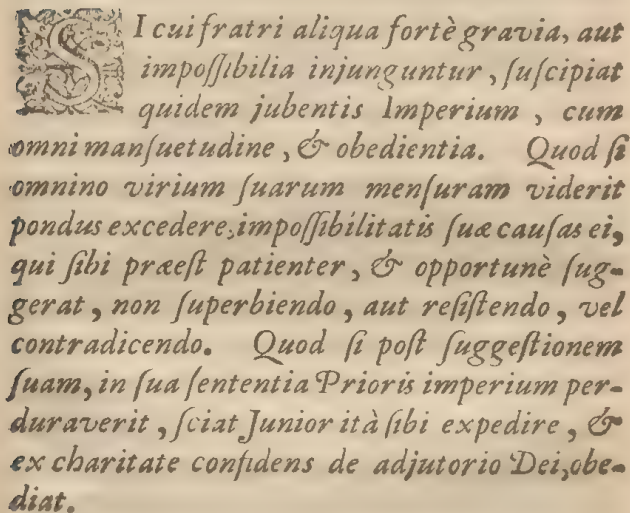 SI cui fratri aliqua fortè gravia, aut
impoſſibilia injunguntur, ſuſcipiat
quidem jubentis Imperium, cum
omni manſuetudine, & obedientia. Quod ſi
omnino virium ſuarum menſuram viderit
pondus excedere, impoſſibilitatis ſuæ cauſas ei,
qui ſibi præeſt patienter, & opportunè ſug-
gerat, non ſuperbiendo, aut reſiſtendo, vel
contradicendo. Quod ſi poſt ſuggeſtionem
ſuam, in ſua ſententia Prioris imperium per-
duraverit, ſciat Junior ità ſibi expedire, &
ex charitate confidens de adjutorio Dei, obe-
diat.